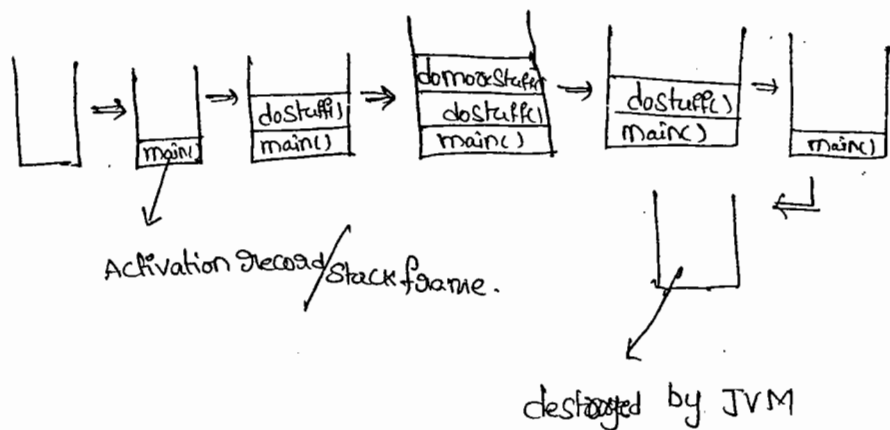 main()
dostuff()
main()
domorestuff()
dostuff()
main()
dostuff()
main()
main()
Activation record/stack frame.
destroyed by JVM